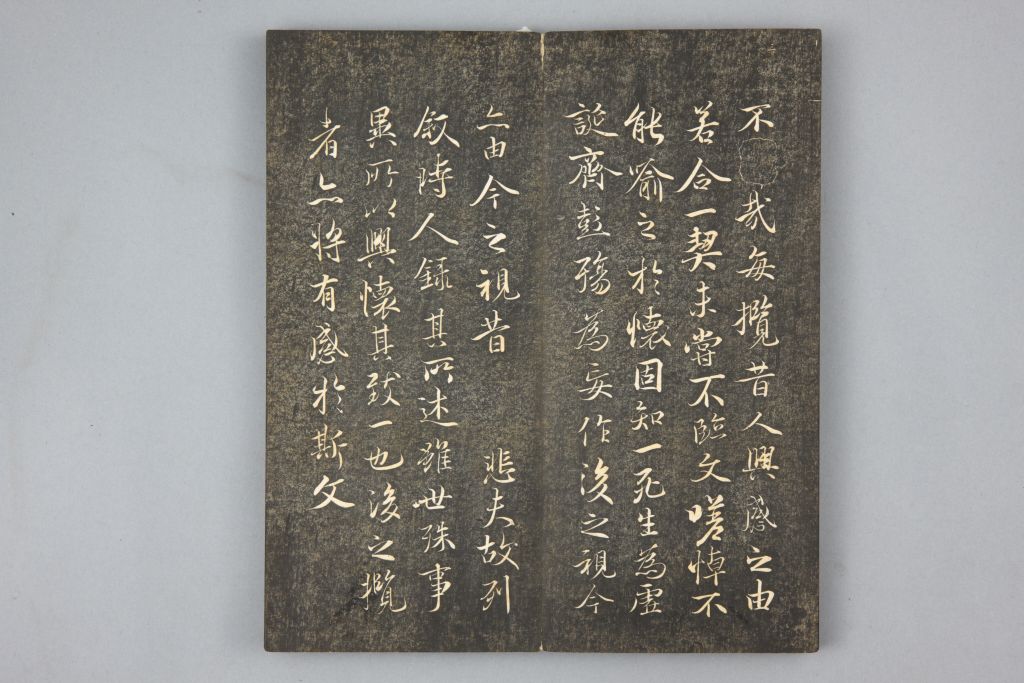 不哉每攬昔人興感之由
若合一契未嘗不臨文嗟悼不
能喻之於懷固知一死生為虛
誕齊彭殤為妄作後之視今
亦由今之視昔 悲夫故列
叙時人錄其所述雖世殊事
異所以興懷其致一也後之攬
者亦將有感於斯文